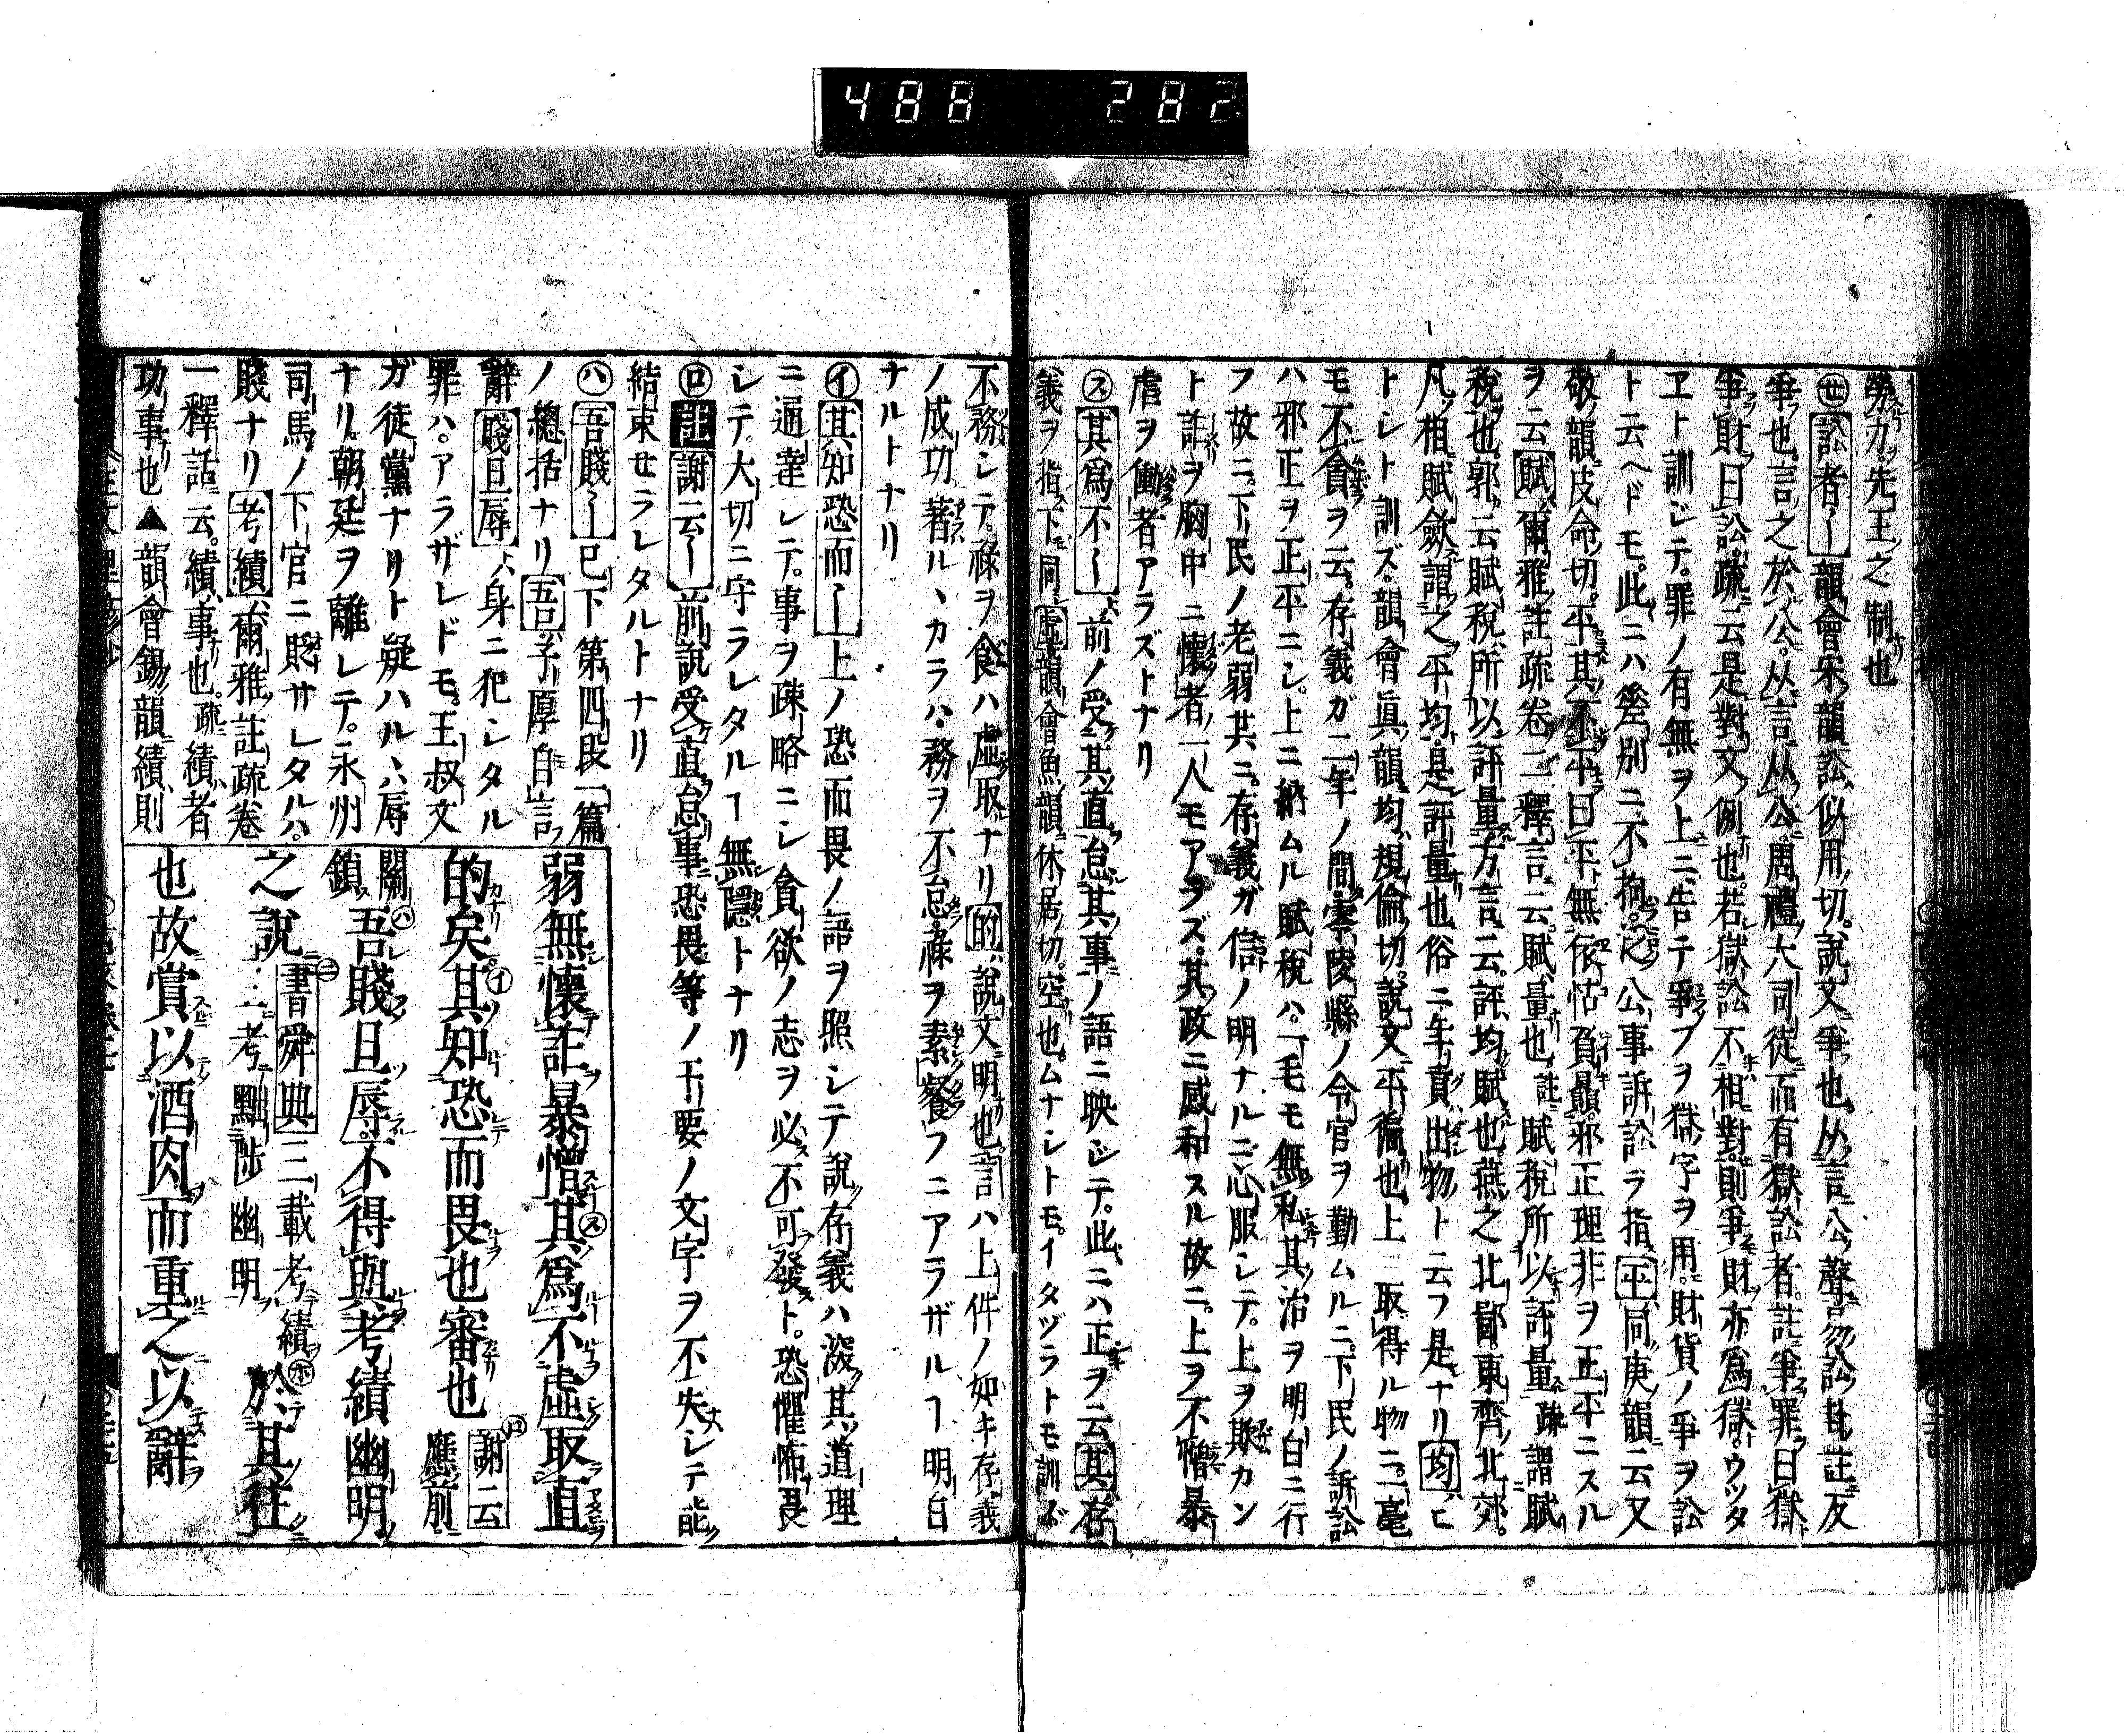 488 282
勞力先王之制也
㊆訟者〱韻會宋韻訟似用切說文爭也从言公聲曰勿訟註反
爭也言之於公从言从公周禮大司徒而有獄訟者註爭罪曰獄
爭財曰訟疏云是對文例也若獄訟不相對則爭財亦爲獄ウツタ
ヱト訓シテ罪ノ有無ヲ上ニ告テ爭フヲ獄字ヲ用財貨ノ爭ヲ訟
ト云ヘドモ此ニハ差別ニ不拘公事訴訟ヲ指平同庚韻云又
敬韻皮命切平其不平曰平無依怙贔負邪正理非ヲ正平ニスル
ヲ云賦爾雅註疏卷二釋言云賦量也註賦稅所以評量疏謂賦
稅也郭云賦稅所以評量方言云評均賦也燕之北鄙東齊北郊
凡相賦斂謂之平均是評量也俗ニ年貢出物ト云フ是ナリ均ヒ
トシト訓ズ韻會眞韻均規倫切說文平徧也上ニ取得ル物ニ一毫
モ不貪ヲ云存義ガ二年ノ間零陵縣ノ令官ヲ勤ムルニ下民ノ訴訟
ハ邪正ヲ正平ニシ上ニ納ムル賦稅ハ一毛モ無私其治ヲ明白ニ行
フ故ニ下民ノ老弱共ニ存義ガ信ノ明ナルニ心服シテ上ヲ欺カン
ト詐ヲ胸中ニ懷者一人モアラズ其政ニ感和スル故ニ上ヲ不憎暴
虐ヲ働者アラズトナリ
㋜其爲不〱前ノ受其直怠其事ノ語ニ映シテ此ニハ正ヲ云其存
義ヲ指下同虛韻會魚韻休居切空也ムナシトモイタヅラトモ訓ズ
不務シテ祿ヲ食ハ虛取ナリ的說文明也言ハ上件ノ如キ存義
ノ成功著ルヽカラハ務ヲ不怠祿ヲ素餐フニアラザルヿ明白
ナルトナリ
㋑其知恐而〱上ノ恐而畏ノ語ヲ照シテ說存義ハ深其道理
ニ通達シテ事ヲ疎略ニシ貪欲ノ志ヲ必不可發ト恐懼怖畏
シテ大切ニ守ラレタルヿ無隱トナリ
㋺註謝云〱前說受直怠事恐畏等ノ干要ノ文字ヲ不失シテ能
結束セラレタルトナリ
㋩吾賤〱已下第四段一篇
ノ總括ナリ吾子厚自言
辭賤且辱身ニ犯シタル
罪ハアラザレドモ王叔文
ガ徒黨ナリト疑ハルヽハ辱
ナリ朝廷ヲ離レテ永州
司馬ノ下官ニ貶サレタルハ
賤ナリ考績爾雅註疏卷
一釋詁云績事也疏績者
功事也▲韻會錫韻績則
弱無懷詐暴憎其㋜爲不虛取直
的矣其㋑知恐而畏也審也㋺謝云應前
關鎖㋩吾賤且辱不得與考績幽明
之說㋥書舜典三載考績三考黜陟幽明㋭於其往
也故賞以酒肉而重之以辭